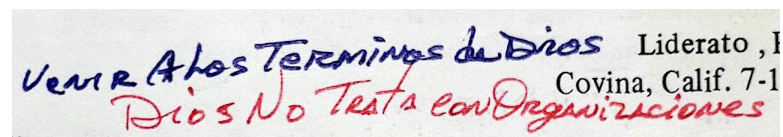 Venir A Los Terminos de Dios Liderato ,
Covina, Calif. 7-1
Dios No Trata con Organizaciones